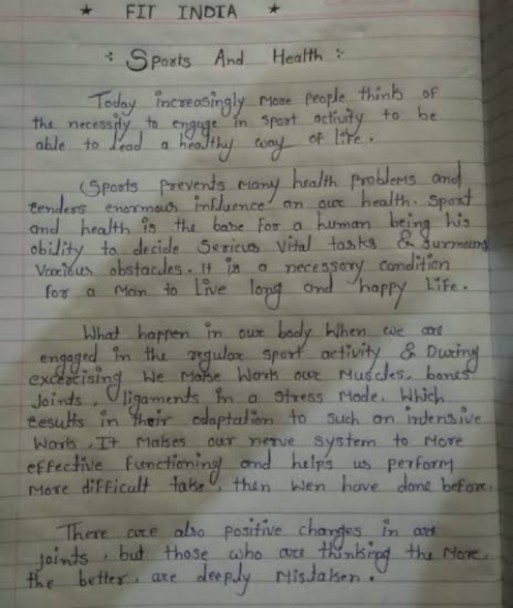 * FIT INDIA *
: Sports And Health :-
Today increasingly more people think of
the necessity to engage in sport activity to be
able to lead a healthy way of life.
Sports prevents many health problems and
tenders enormous influence on our health. Sport
and health is the base for a human being his
ability to decide Serious Vital tasks & Surmound
Various obstacles. It is a necessary condition
for a man to Live long and happy Life.
What happen in our body When we are
engaged in the regular sport activity & During
excercising We Make Work our Muscles, bones
Joints, ligaments in a stress Mode. Which
results in their adaptation to such an intensive
Work. It Makes our nerve system to More
effective functioning and helps us perform
More difficult take, then Wen have done before.
There are also positive changes in are
joints, but those who are thinking the More,
the better, are deeply Mistaken.